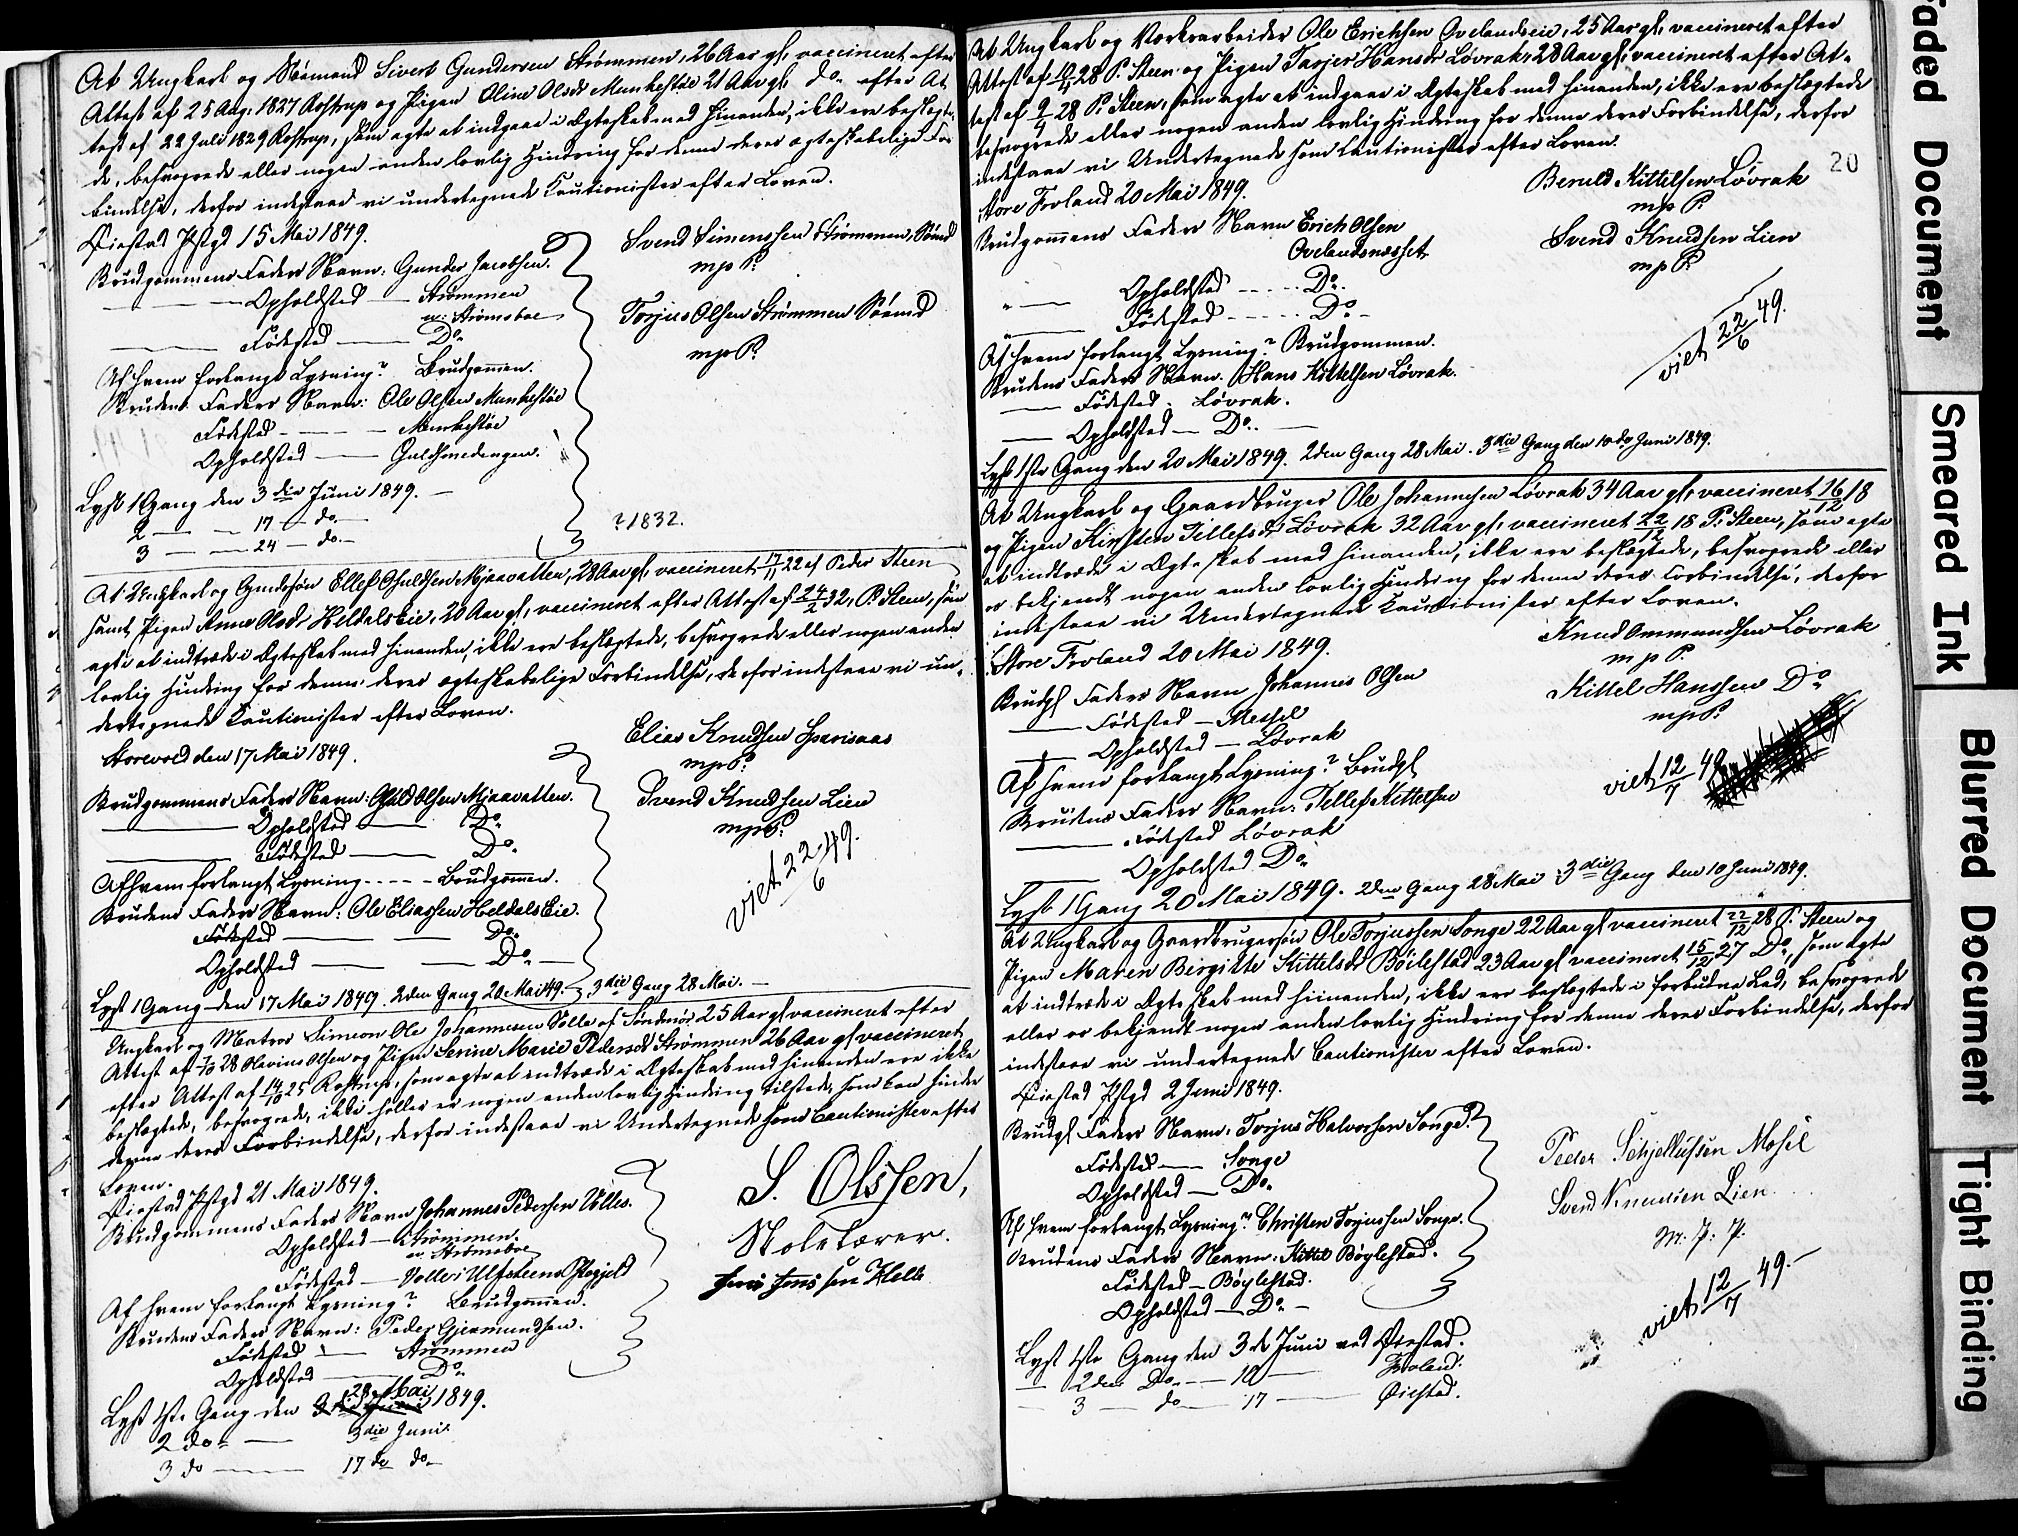 At Ungkarl og Sømand Sivert Gundersen Strømmen, 26 Aar gl. vaccineret efter
Attest af 25 Aug. 1827 Rostrup og Pigen Oline Olsdr Munkestøe 21 Aar gl. do. efter At
test af 22 Juli 1829 Rostrup, som agte at indgaae i Ægteskab med hinanden, ikke ere beslægte
de, besvogrede eller nogen anden lovlig Hindring for denne deres ægteskabelige For
bindelse, derfor indestaae vi undertegnede Cautionister efter Loven.
Øiestad Pstgd 15 Mai 1849.
Svend Simonssen Strømmen, Sømd
mpP.
Brudgommens Faders Navn: Gunder Jacobsen.
Opholdsted Strømmen
Torjus Olsen Strømmen Sømd
mpP.
Fødested Do.
Af hvem forlangt Lysning? Brudgommen.
Brudens Faders Navn: Ole Olsen Munkestøe
Fødested Munkestøe
Opholdsted Guldsmedengen.
Lyst 1 Gang den 3die Juni 1849.
2 17 do.
3 24 do.
? 1832.
At Ungkarl og Ellef Mjaavatten, 28 Aar gl. vaccineret 17/11 22 af Peder Steen
samt Pigen Anne Olsdr Heldalseie, 20 Aar gl. vaccineret efter Attest af 24/2 32, P. Steen, som
agte at indtræde i Ægteskab med hinanden, ikke ere beslægtede, besvogrede eller nogen anden
lovlig Hindring for denne deres ægteskabelige Forbindelse, derfor indestaae vi un
dertegnede Cautionister efter Loven.
Storevold den 17 Mai 1849.
Elias Knudsen
mpP.
Svend Knudsen Lien
mpP.
Brudgommens Faders Navn: Olsen Mjaavatten.
Opholdsted Do.
Fødested Do.
Af hvem forlangt Lysning Brudgommen.
viet 22/6 49.
Brudens Faders Navn: Ole Eliassen Heldalseie.
Fødested Do.
Opholdsted Do.
Lyst 1 Gang den 17 Mai 1849. 2den Gang 20 Mai 49. 3die Gang 28 Mai.
Ungkarl og Matros Simeon Ole Johannesen Volle af Søndmør 25 Aar gl vaccineret efter
Attest af 28 Olsen og Pigen Serine Marie Pedersdr Strømmen 26 Aar gl vaccineret
efter Attest af 14/10 25 Rostrup, som agte at indtræde i Ægteskab med hinanden ere ikke
beslægtede, besvogrede, ikke heller er nogen anden lovlig Hindring tilstede, som kan hindre
denne deres Forbindelse, derfor indestaae vi Undertegnede som Cautionister efter
Loven.
Øiestad Pstgd 21 Mai 1849.
S. Olssen,
Skolelærer.
Brudgommens Faders Navn Johannes Pedersen Volles.
Opholdsted Strømmen.
Fødested Volle i Ulfsteens Pstgjeld
Af hvem forlangt Lysning? Brudgommen.
Brudens Faders Navn: Peder Gjermundsen.
Fødested Strømmen
Opholdsted Do.
Lyst 1ste Gang den 28 Mai 1849.
2 do. 3die Juni
3 do 17de do.
20
At Ungkarl og Værkarbeider Ole Erichsen Ovelandseie, 25 Aar gl. vaccineret efter
Attest af 28 P. Steen og Pigen Tarjer Hansdr Løvrak, 28 Aar gl. vaccineret efter At
test af 9/4 28 P. Steen, som agte at indgaae i Ægteskab med hinanden, ikke ere beslægtede
besvogrede eller nogen anden lovlig Hindring for denne deres Forbindelse, derfor
indestaae vi Undertegnede som Cautionister efter Loven.
Store Froland 20 Mai 1849.
Kittelsen Løvrak
mpP.
Svend Knudsen Lien
mpP.
Brudgommens Faders Navn Erich Olsen
Ovelandsnesset
Opholdsted Do.
Fødested Do.
viet 22/6 49.
Af hvem forlangt Lysning? Brudgommen.
Brudens Faders Navn. Hans Kittelsen Løvrak.
Fødested Løvrak.
Opholdsted Do.
Lyst 1ste Gang den 20 Mai 1849. 2den Gang 28 Mai. 3die Gang den 10de Juni 1849.
At Ungkarl og Gaardbruger Ole Johannesen Løvrak 34 Aar gl. vaccineret 16/12 18
og Pigen Kirsten Tellefsdr Løvrak 32 Aar gl. vaccineret 22/12 18 P. Steen, som agte
at indtræde i Ægteskab med hinanden, ikke ere beslægtede, besvogrede eller
er bekjendt nogen anden lovlig Hindring for denne deres Forbindelse, derfor
indestaae vi Undertegnede Cautionister efter Loven.
Store Froland 20 Mai 1849.
Knud Ommundsen Løvrak
mpP.
Kittel Hanssen Do
mpP.
Brudgs Faders Navn Johannes Olsen
Fødested Messel
Opholdsted Løvrak
Af hvem forlangt Lysning? Brudgs
viet 12/7 49
Brudens Faders Navn: Tellef Kittelsen
Fødested Løvrak
Opholdsted Do.
Lyst 1 Gang 20 Mai 1849. 2den Gang 28 Mai 3die Gang den 10 Juni 1849.
At Ungkarl og Gaardbrugersøn Ole Torjussen Songe 22 Aar gl vaccineret 22/12 28 P. Steen og
Pigen Maren Birgitte Kittelsdr Böilestad 23 Aar gl vaccineret 15/12 27 Do, som agte
at indtræde i Ægteskab med hinanden, ikke ere beslægtede i forbudne Led, besvogrede
eller er bekjendt nogen anden lovlig Hindring for denne deres Forbindelse, derfor
indestaae vi undertegnede Cautionister efter Loven.
Øiestad Pstgd 2 Juni 1849.
Brudgs Faders Navn: Torjus Halvorsen Songe.
Peder Schjellufsen Mosel
Fødested Songe
Opholdsted Do.
Svend Knudsen Lien
M. P. P.
Af hvem forlangt Lysning? Christen Torjussen Songe.
Brudens Faders Navn: Kittel Bøylestad.
Fødested Bøylestad.
Opholdsted Do.
viet 12/7 49.
Lyst 1ste Gang den 3de Juni ved Øiestad.
2den Do. 10 Froland.
3 do 17 Øiestad.
Faded Document
Smeared Ink
Blurred Document
Tight Binding